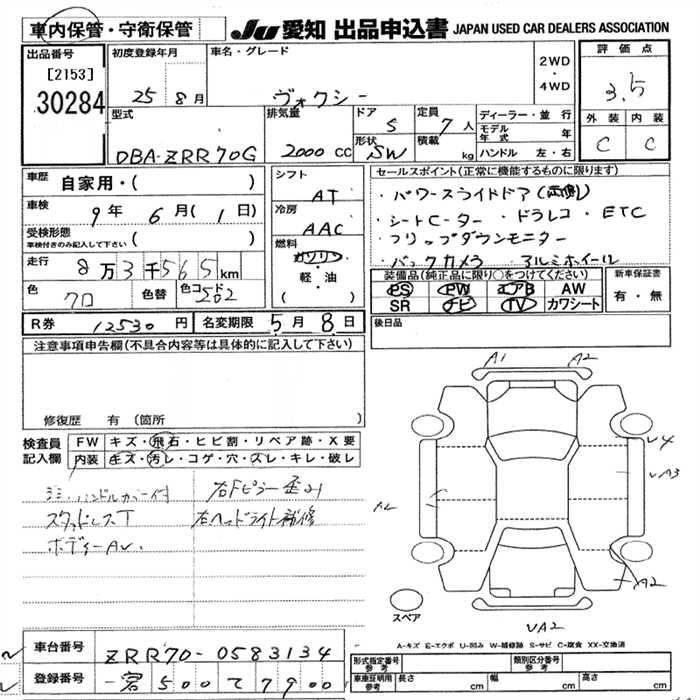 車内保管・守衛保管
JU 愛知 出品申込書 JAPAN USED CAR DEALERS ASSOCIATION
出品番号
[2153]
30284
初度登録年月
25 8月
車名・グレード
ヴォクシー
2WD
・
4WD
評価点
3.5
外装 内装
C C
型式
DBA-ZRR70G
排気量
2000 cc
ドア
5
形状
SW
定員
7人
積載
kg
ディーラー・並行
モデル年式 年
ハンドル 左・右
車歴 自家用・( )
車検 9年 6月(1日)
受検形態
車検付きのみ記入して下さい ( )
走行 8万3千565km
色 クロ 色替 色コード 202
シフト
AT
冷房
AAC
燃料
ガソリン
軽・油
( )
R券 12530円 名変期限 5月8日
セールスポイント(正常に機能するものに限ります)
・パワースライドドア(両側)
・シートヒーター ・ドラレコ ・ETC
・フリップダウンモニター
・バックカメラ ・アルミホイール
装備品(純正品に限り○をつけてください)
PS PW エアB AW
SR ナビ TV カワシート
新車保証書
有・無
後日品
注意事項申告欄(不具合内容等は具体的に記入して下さい)
修復歴 有(箇所 )
検査員記入欄
FW キズ・飛石・ヒビ割・リペア跡・X要
内装 キズ・汚レ・コゲ・穴・スレ・キレ・破レ
注・ハンドルカバー付
スタッドレスT
ボディーAU.
右Fピラー歪み
右ヘッドライト補修
A1 A2
U4
UA3
A2
A2
UA2
スペア
A-キズ E-エクボ U-凹み W-補修跡 S-サビ C-腐食 XX-交換済
車台番号 ZRR70-0583134
登録番号 一宮500て7900
形式指定番号
参考
類別区分番号
参考
車庫証明用
参考
長さ cm 幅 cm 高さ cm